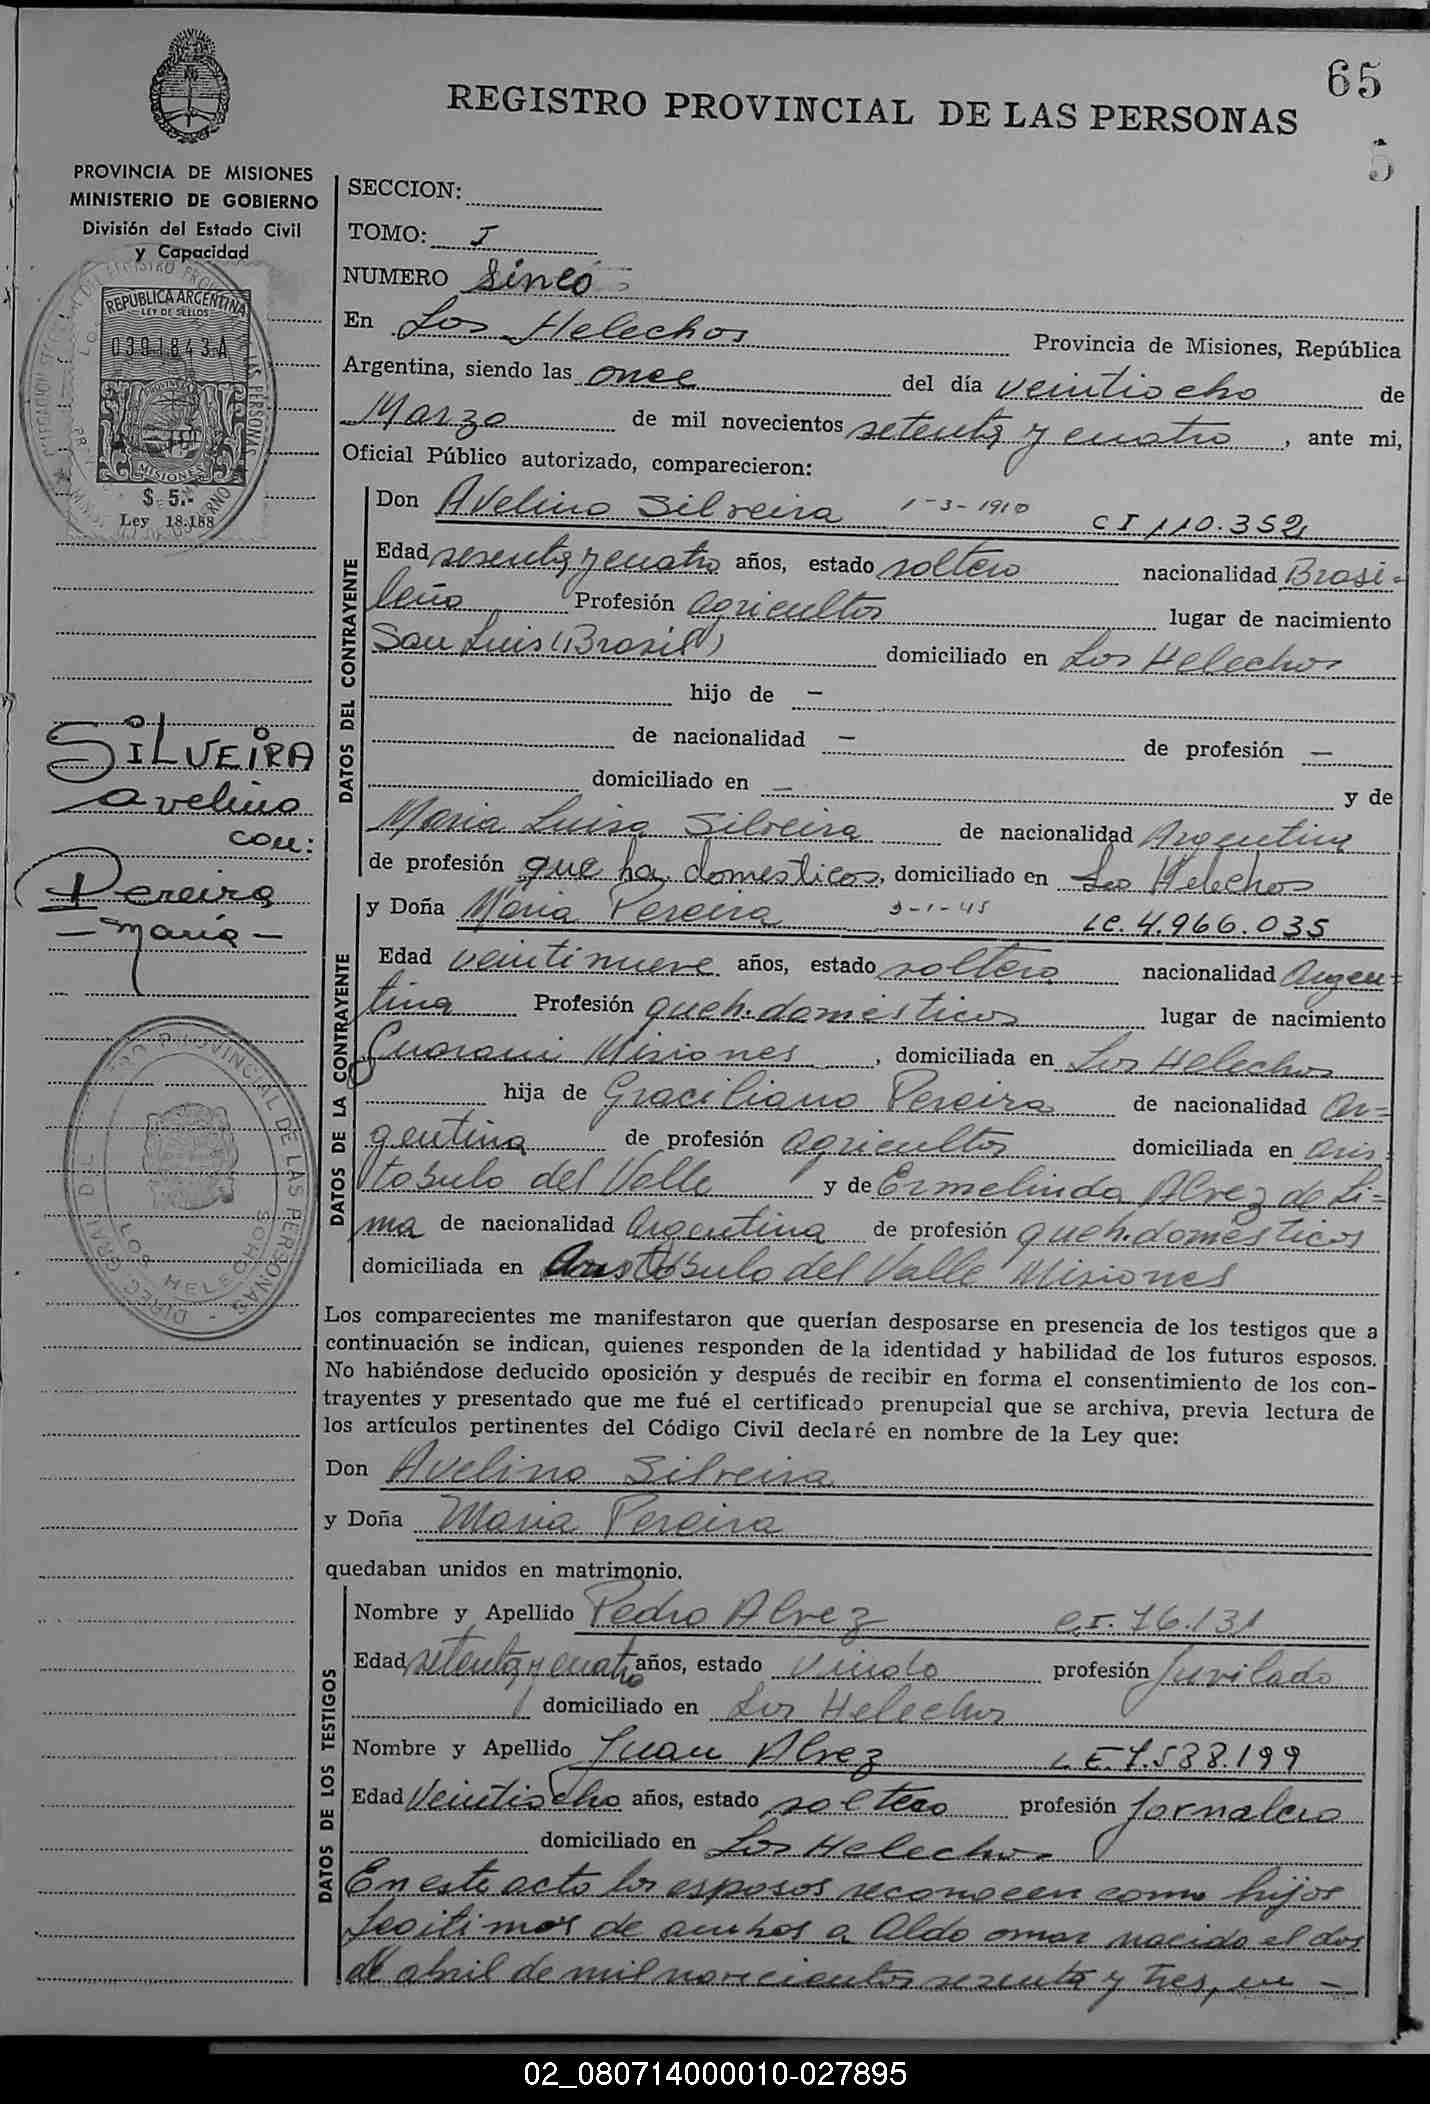 65
REGISTRO PROVINCIAL DE LAS PERSONAS
5
PROVINCIA DE MISIONES
MINISTERIO DE GOBIERNO
División del Estado Civil
y Capacidad
REPUBLICA ARGENTINA
LEY DE SELLOS
0391843A
MISIONES
$ 5.-
Ley 18.188
SILVEIRA
Avelino
con:
Pereira
- María -
REGISTRO PROVINCIAL DE LAS PERSONAS
LOS HELECHOS
SECCION:
TOMO: I
NUMERO Sinco
En Los Helechos Provincia de Misiones, República
Argentina, siendo las once del día veintiocho de
Marzo de mil novecientos setenta y cuatro, ante mi,
Oficial Público autorizado, comparecieron:
DATOS DEL CONTRAYENTE
Don Avelino Silveira 1-3-1910 C I 110.352
Edad sesenta y cuatro años, estado soltero nacionalidad Brasi=
leño Profesión Agricultor lugar de nacimiento
San Luis (Brasil) domiciliado en Los Helechos
hijo de -
de nacionalidad - de profesión -
domiciliado en - y de
Maria Luisa Silveira de nacionalidad Argentina
de profesión que ha. domesticos, domiciliado en Los Helechos
DATOS DE LA CONTRAYENTE
y Doña Maria Pereira 9-1-45 LC. 4.966.035
Edad veintinueve años, estado soltera nacionalidad Argen=
tina Profesión queh. domésticos lugar de nacimiento
Guarani Misiones, domiciliada en Los Helechos
hija de Graciliano Pereira de nacionalidad Ar=
gentina de profesión agricultor domiciliada en Aris=
tobulo del Valle y de Ermelinda Alvez de Li=
ma de nacionalidad Argentina de profesión queh. domésticos
domiciliada en Aristobulo del Valle Misiones
Los comparecientes me manifestaron que querían desposarse en presencia de los testigos que a
continuación se indican, quienes responden de la identidad y habilidad de los futuros esposos.
No habiéndose deducido oposición y después de recibir en forma el consentimiento de los con-
trayentes y presentado que me fué el certificado prenupcial que se archiva, previa lectura de
los artículos pertinentes del Código Civil declaré en nombre de la Ley que:
Don Avelino Silveira
y Doña Maria Pereira
quedaban unidos en matrimonio.
DATOS DE LOS TESTIGOS
Nombre y Apellido Pedro Alvez C.I. 76.131
Edad setenta y cuatro años, estado viudo profesión Juvilado
domiciliado en Los Helechos
Nombre y Apellido Juan Alvez L.E. 7.588.199
Edad Veintiocho años, estado soltero profesión Jornalero
domiciliado en Los Helechos
En este acto los esposos reconocen como hijos
legitimos de ambos a Aldo omar nacido el dos
de abril de mil novecientos sesenta y tres, en -
02_080714000010-027895